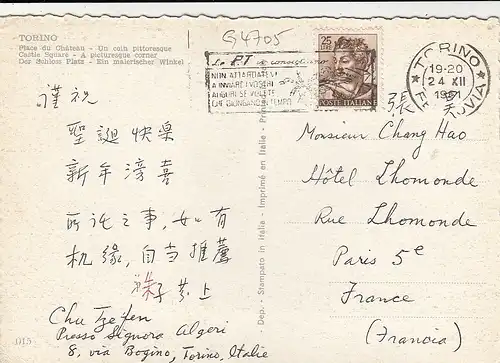 TORINO
Place du Château - Un coin pittoresque
Castle Square - A picturesque corner
Der Schloss Platz - Ein malerischer Winkel
G4705
Le PT vi consigliano
NON ATTARDATEVI
A INVIARE I VOSTRI
AUGURI SE VOLETE
CHE GIUNGANO IN TEMPO
25
POSTE ITALIANE
TORINO
19-20
24 XII
1961
FERROVIA
謹祝
聖誕快樂
新年滂喜
所託之事,如有
机缘,自当推薦
Chu Tze-fen
Presso Signora Algeri
8, via Bogino, Torino, Italie
015
Dep. - Stampato in Italia - Imprimé en Italie - Printed in Italy
張
Monsieur Chang Hao
Hôtel Lhomonde
Rue Lhomonde
Paris 5e
France
(Francia)